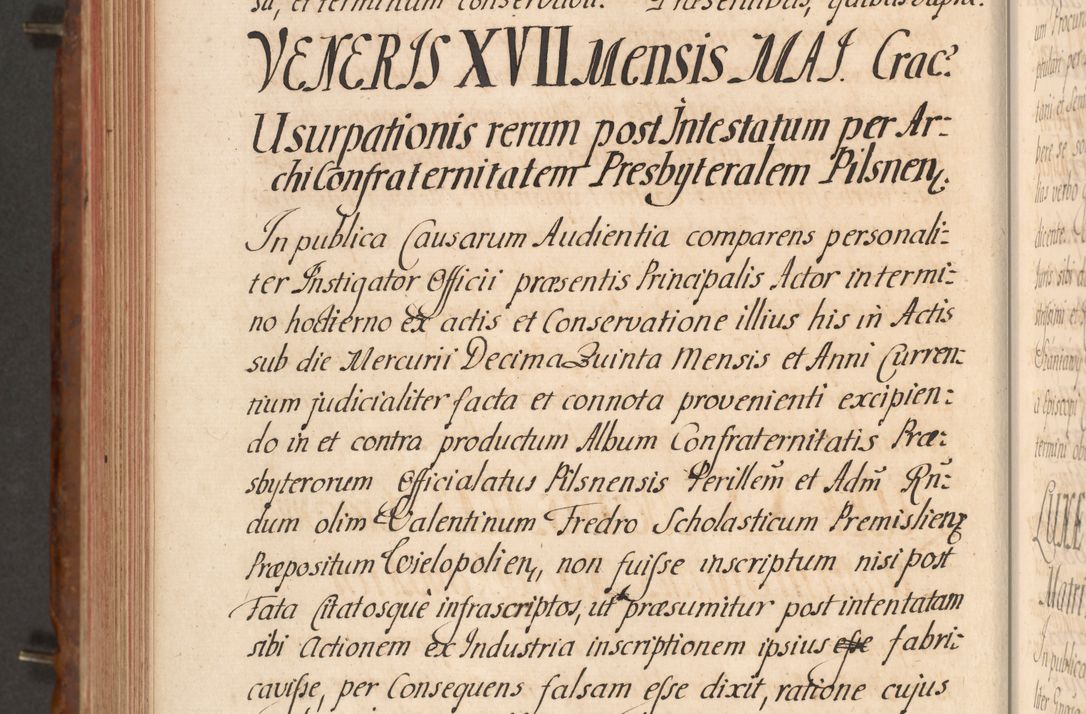 su, et terminum conservavit. Præsentibus, quibus supra.
VENERIS XVII Mensis MAI. Crac:
Usurpationis rerum post Intestatum per Ar-
chiConfraternitatem Presbyteralem Pilsnen.
In publica Causarum Audientia comparens personali-
ter Instigator Officii præsentis Principalis Actor in termi-
no hodierno ex actis et Conservatione illius his in Actis
sub die Mercurii Decima Quinta Mensis et Anni Curren-
tium judicialiter facta et connota provenienti excipien-
do in et contra productum Album Confraternitatis Præ-
sbyterorum Officialatus Pilsnensis Perillem̃ et Adm̃ Rñ-
dum olim Valentinum Fredro Scholasticum Premislien
Præpositum Wielopolien, non fuisse inscriptum nisi post
Fata Citatosquè infrascriptos, ut præsumitur post intentatam
sibi Actionem ex Industria inscriptionem ipsius esse fabri-
cavisse, per Consequens falsam esse dixit, ratione cujus
um Procur
tarii et Sen
bere se so
lias verbo
dicente.
toris sibi d
a Episcopi
termini ob
LUXE
Matri
In publica
liter